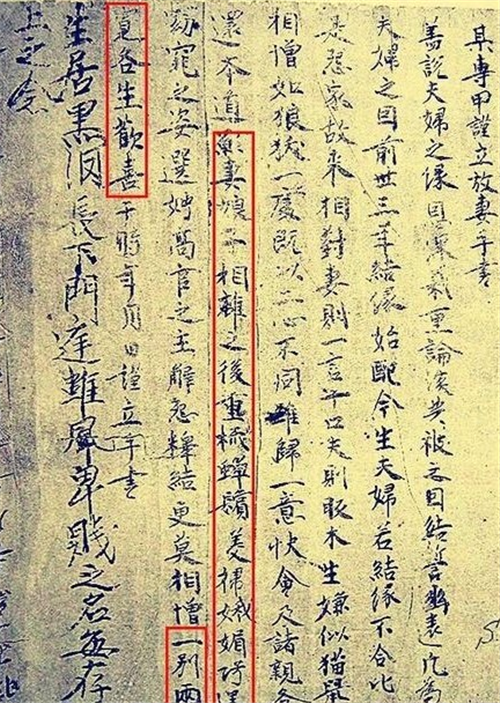 某專甲謹立放妻手書
蓋說夫婦之緣恩深義重論談共被之因結誓幽遠凡為
夫婦之因前世三年結緣始配今生夫婦若結緣不合比
是怨家故來相對妻則一言十口夫則販木生嫌似猫鼠
相憎如狼一處既以二心不同難歸一意快會及諸親各
還本道願妻娘子相離之後重梳蟬鬢美掃娥媚巧逞
窈窕之姿選娉高官之主解怨釋結更莫相憎一別兩
寬各生歡喜于時年月日謹立手書
生居黑長下門庭雖卑賤之名每存
之念